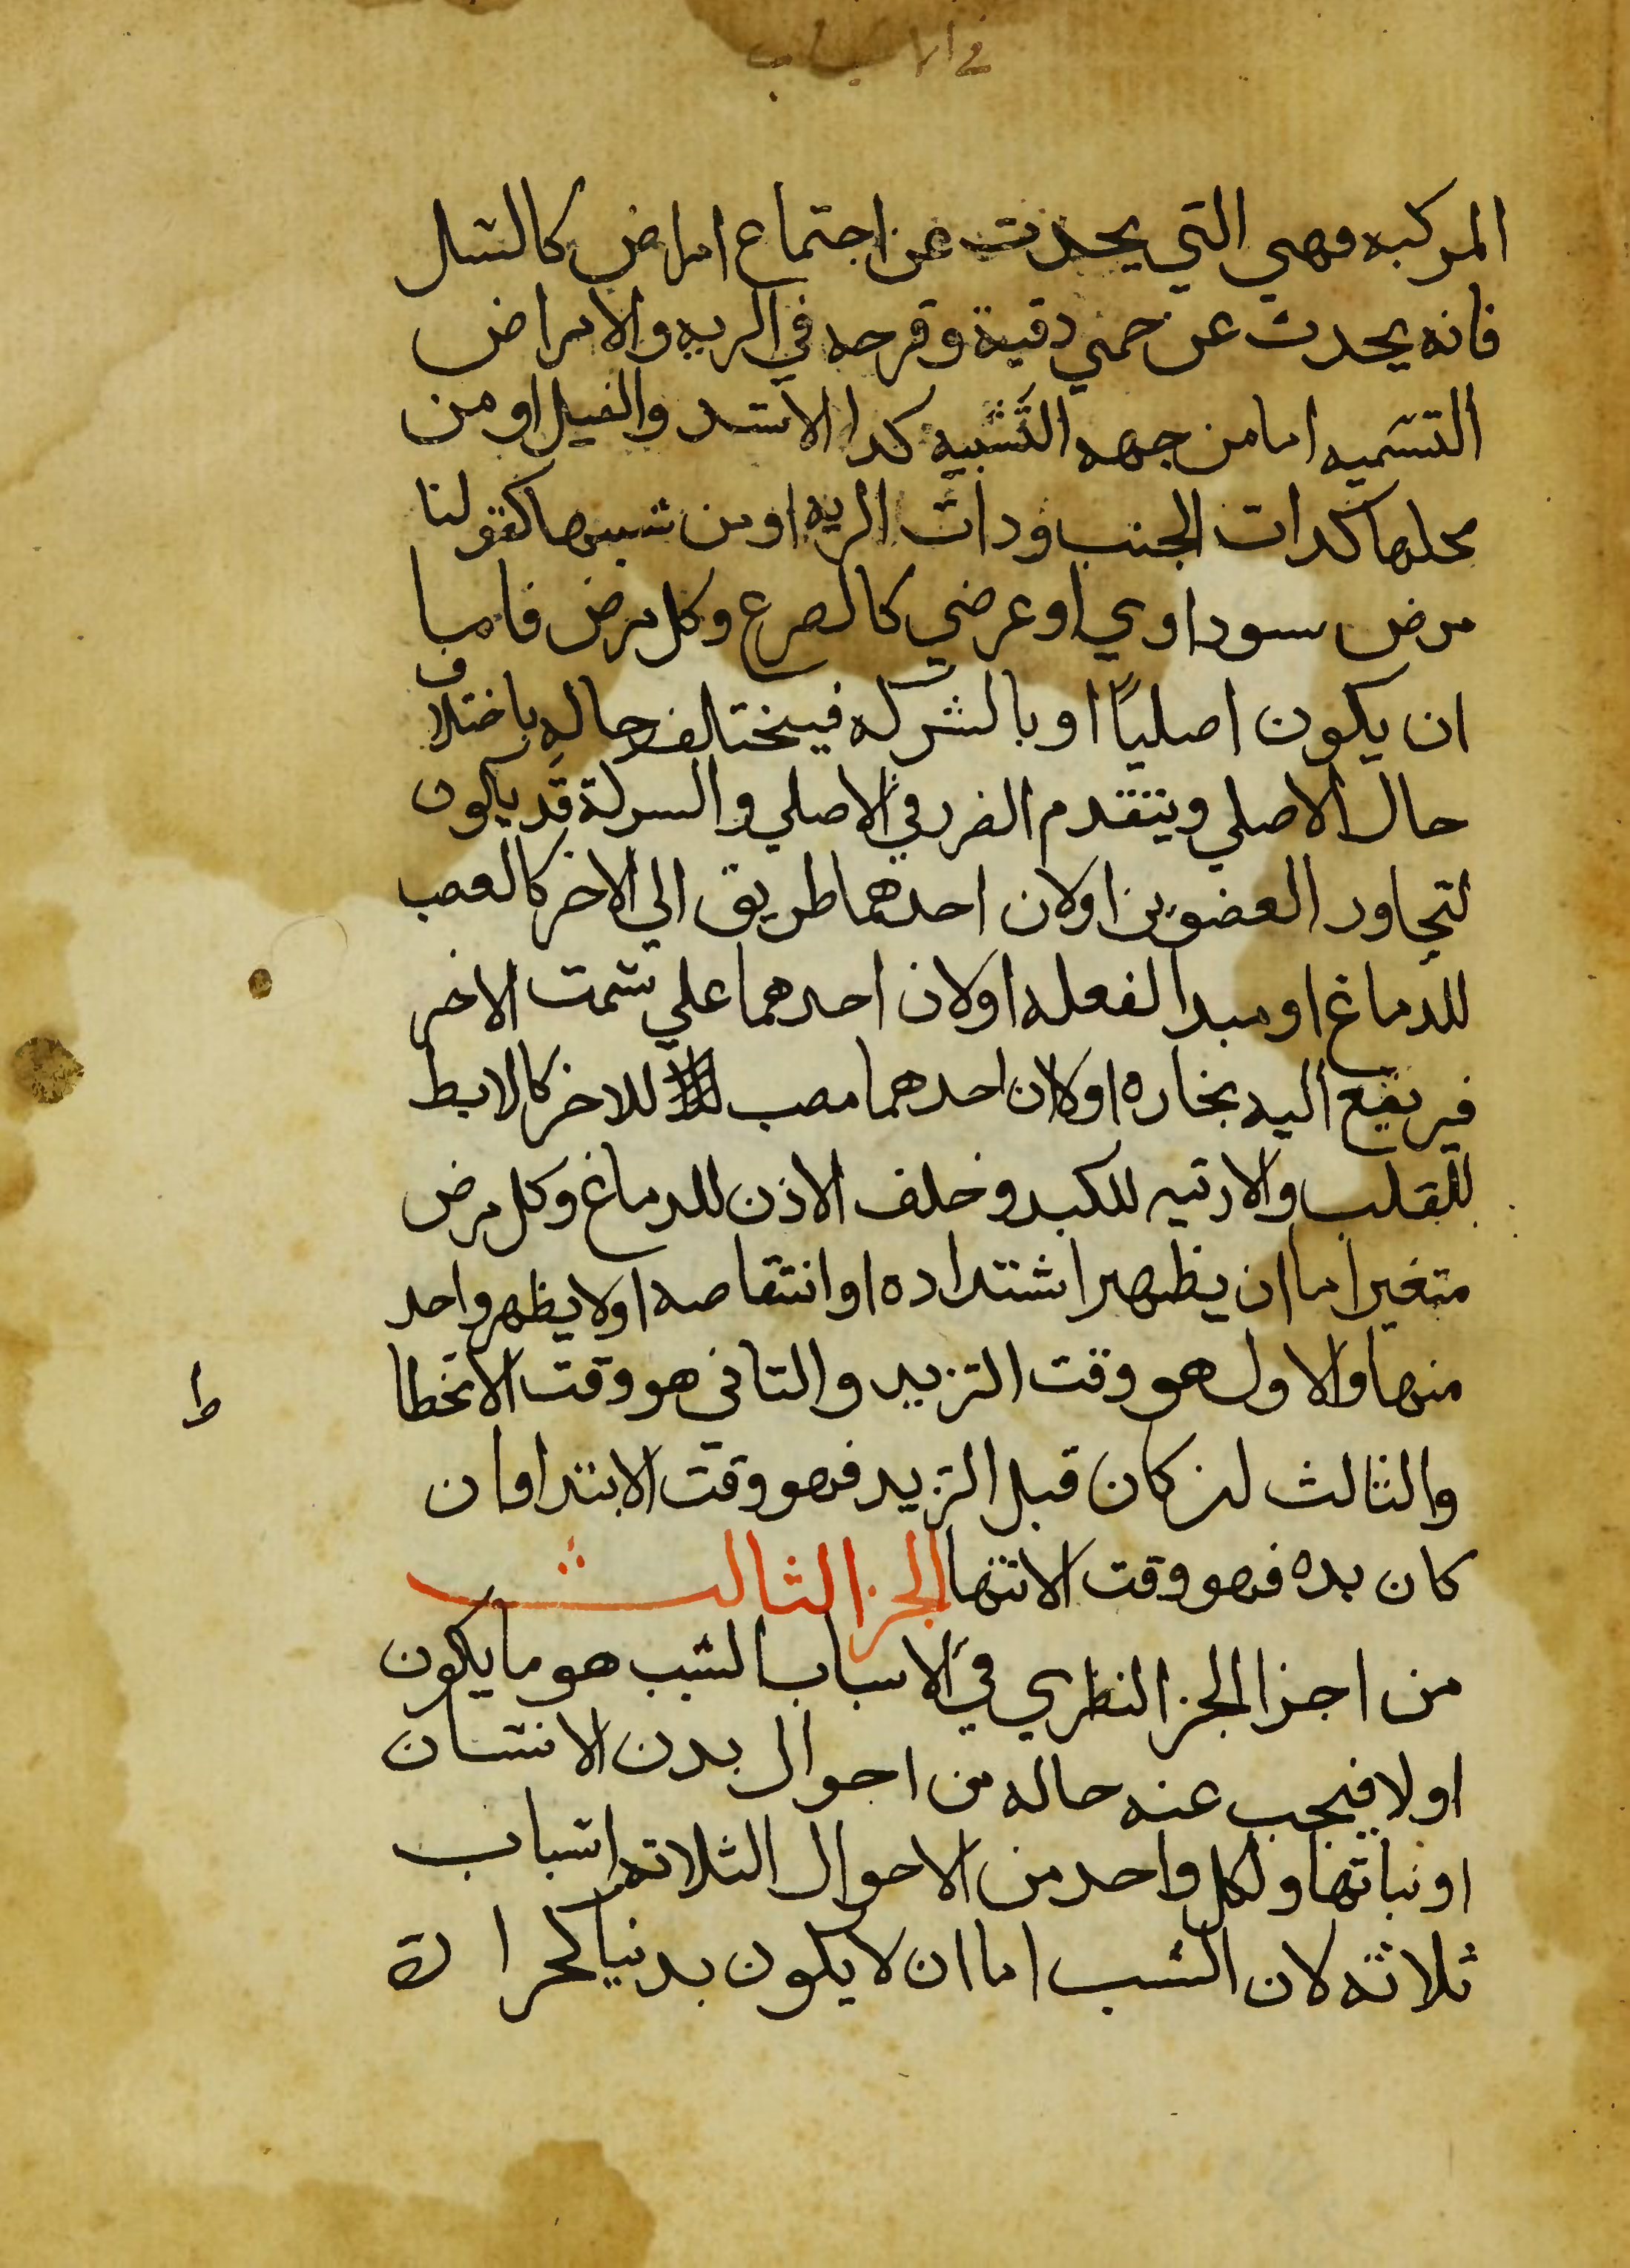 في الاسباب
المركبه فهي التي يحدث عن اجتماع امراض كالسل
فانه يحدث عن حمي دقية وقرحه في الريه والامراض
التسميه اما من جهه التشبيه كدا الاسد والفيل او من
محلها كدات الجنب ودات الريه او من سببها كقولنا
مرض سوداوي او عرضي كالصرع وكل مرض فاما
ان يكون اصلياً او بالشركه فيختلف حاله باختلاف
حال الاصلي ويتقدم الضرر في الاصلي والسركة قد يكون
لتجاور العضوين او لان احدهما طريق الي الاخر كالعصب
للدماغ او مبدا لفعله او لان احدهما علي سمت الاخر
فيرتفع اليه بخاره او لان احدهما مصب للاخر كالابط
للقلب والارتيه للكبد وخلف الاذن للدماغ وكل مرض
متغير اما ان يظهر اشتداده او انتقاصه او لا يظهر واحد
منها والاول هو وقت التزيد والتاني هو وقت الانحطا
ط
والثالث ان كان قبل التزيد فهو وقت الابتدا وان
كان بده فهو وقت الانتها الجز الثالث
من اجزا الجز النظري في الاسباب السبب هو ما يكون
اولا فيجب عنه حاله من احوال بدن الانسان
او نباتها ولكل واحد من الاحوال الثلاته اسباب
ثلاثه لان السبب اما ان لا يكون بدنيا كحرارة